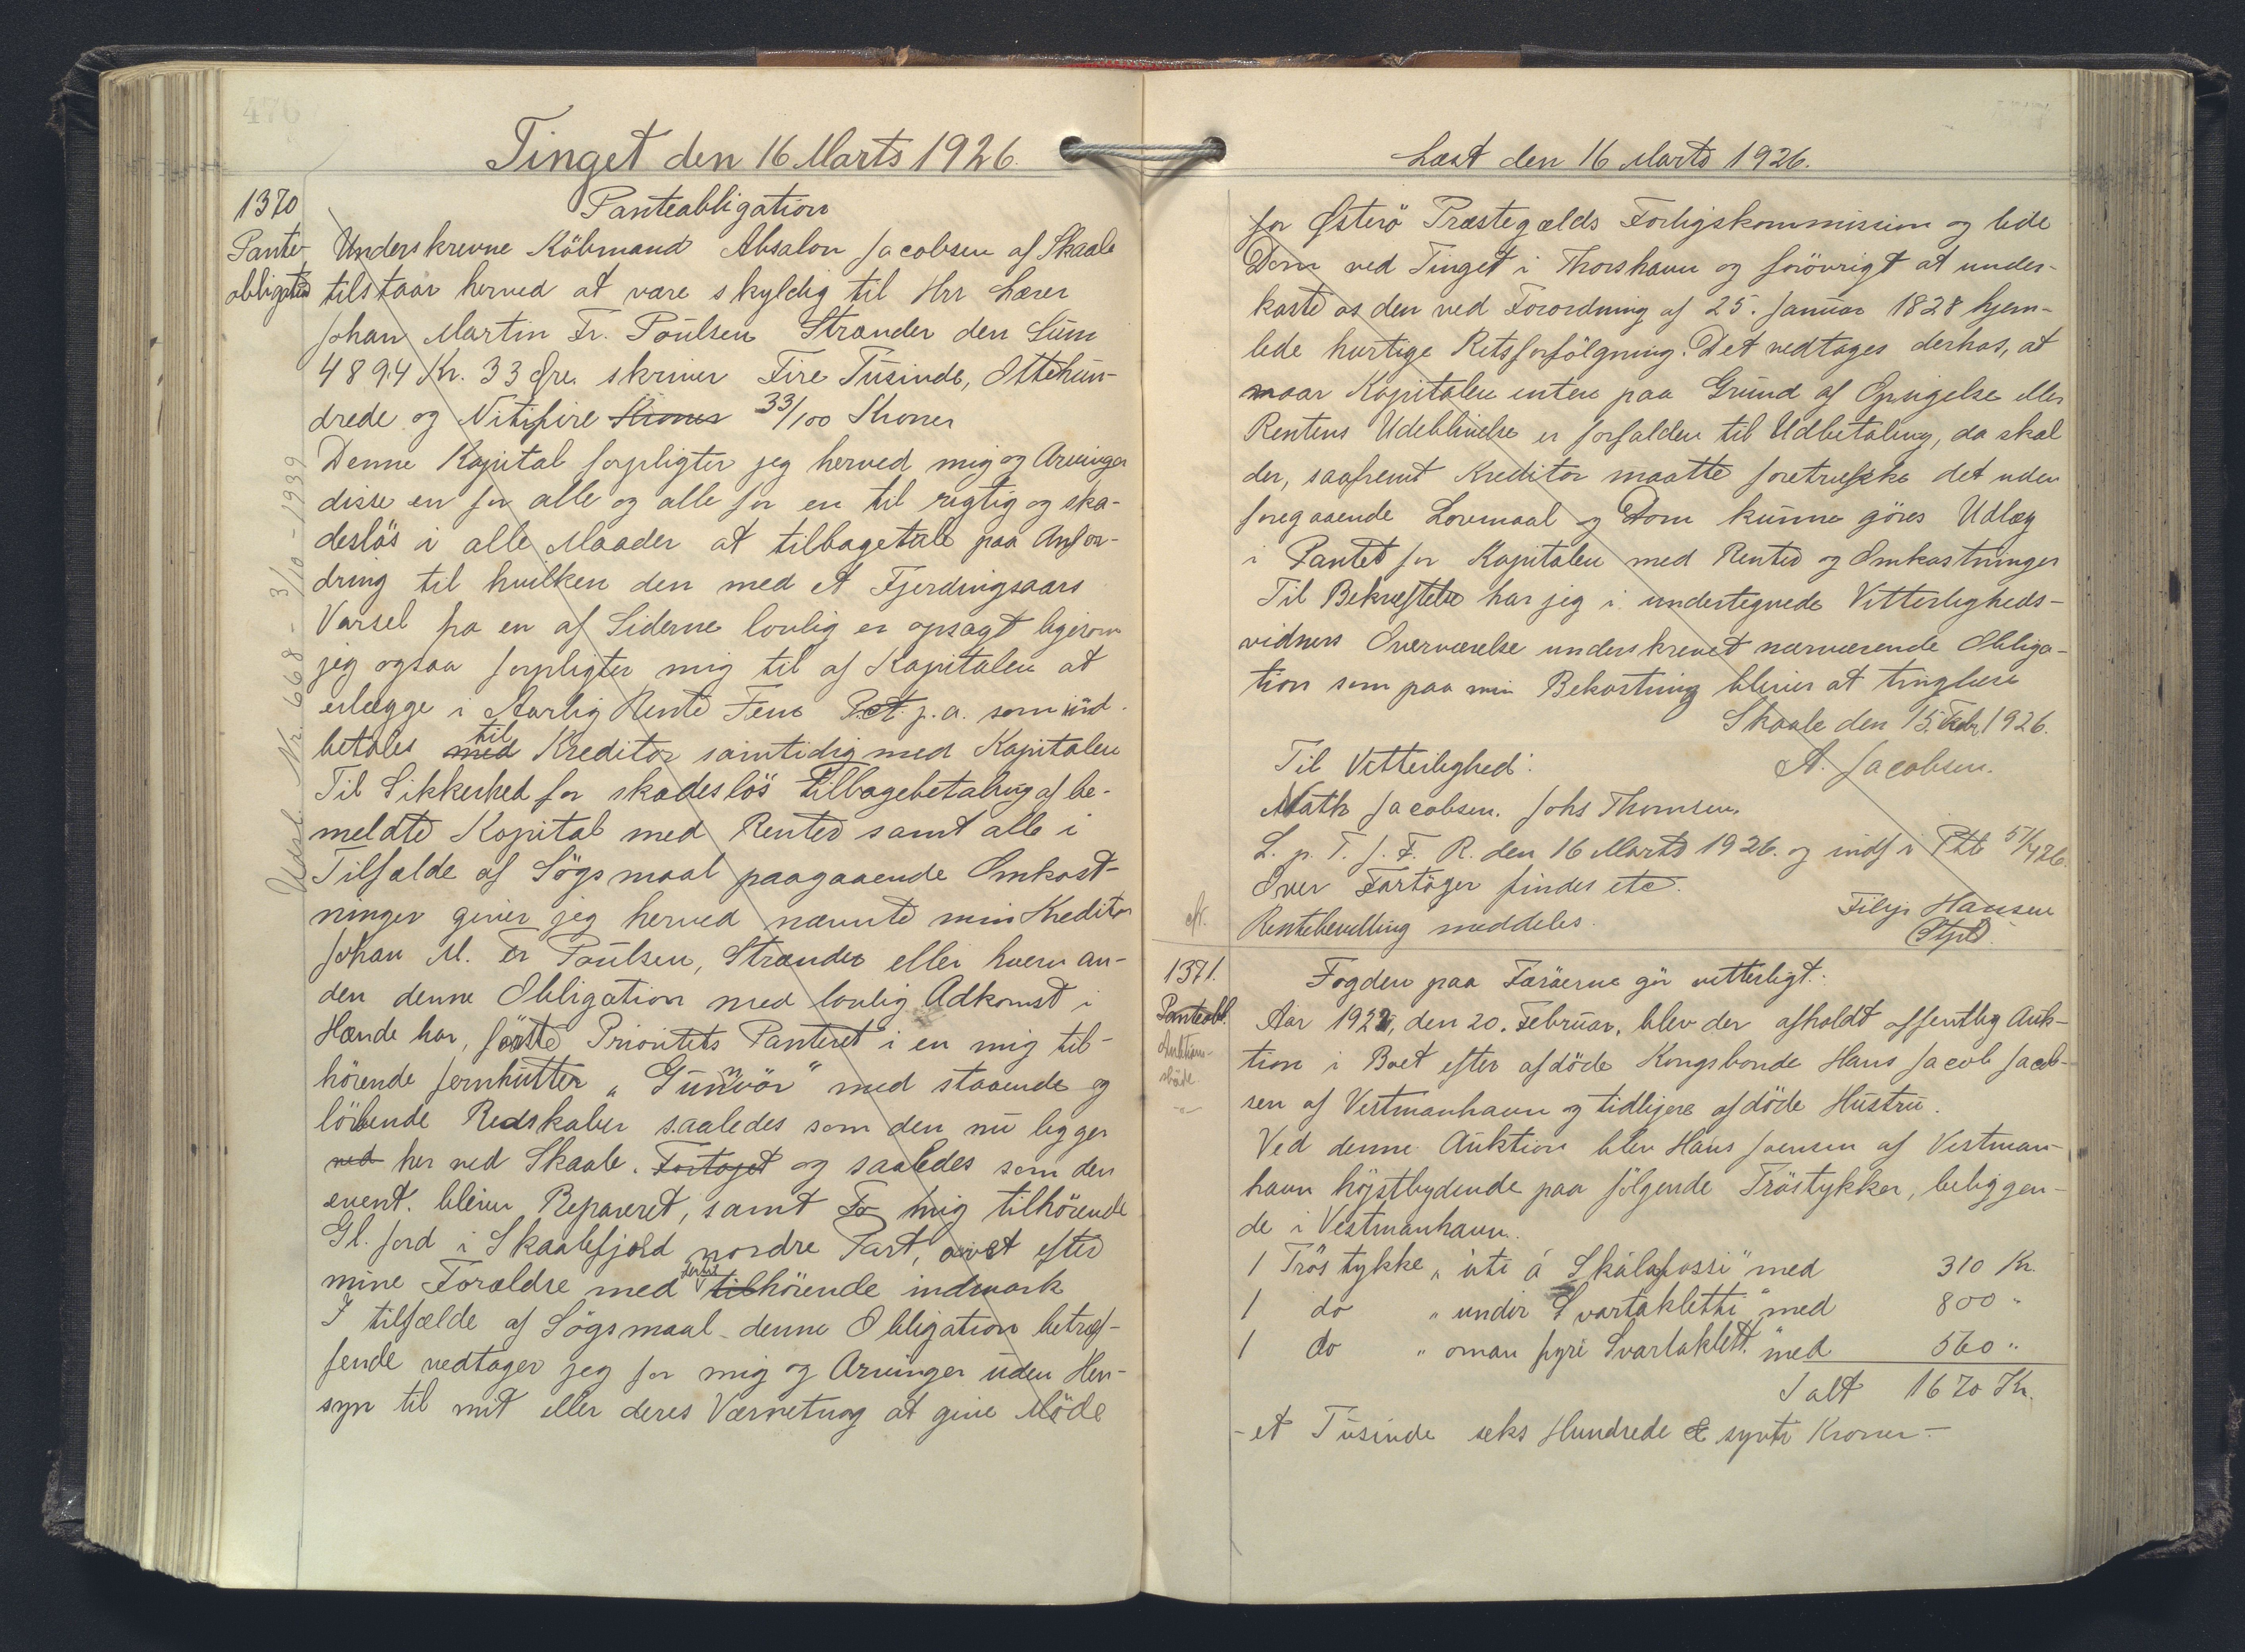 476
Tinget den 16 Marts 1926.
1370
Panteobligation
Pante-
obligation
Underskrevne Köbmand Absalon Jacobsen af Skaale
tilstaar herved at være skyldig til Hrr Lærer
Johan Martin Fr. Poulsen Strænder den Sum
4894 Kr. 33 Øre skriver Fire Tusinde, Ottehun-
drede og Nitifire Kroner 33/100 Kroner
Denne Kapital forpligter jeg herved mig og Arvinger
disse en for alle og alle for en til rigtig og ska-
deslös i alle Maader at tilbagetale paa Anfor-
dring til hvilken den med et Fjerdingsaars
Varsel fra en af Siderne lovlig er opsagt ligesom
jeg ogsaa forpligter mig til af Kapitalen at
erlægge i Aarlig Rente Fem P.ct. p.a. som ind-
betales med til Kreditor samtidig med Kapitalen
Til Sikkerhed for skadeslös Tilbagebetaling af be-
meldte Kapital med Renter samt alle i
Tilfælde af Sögsmaal paagaaende Omkost-
ninger giver jeg herved nævnte min Kreditor
Johan M. Fr Poulsen, Strænder eller hvem an-
den denne Obligation med lovlig Adkomst i
Hænde har, første Prioritets Panteret i en mig til-
hörende Jernkutter „Gunvör“ med staaende og
löbende Redskaber saaledes som den nu ligger
ved her ved Skaale. Fortøjet og saaledes som den
event. bliver Repareret, samt Fo mig tilhörende
Gl. Jord i Skaalefjord nordre Part, arvet efter
mine Forældre med dertil tilhörende indmark
I tilfælde af Sögsmaal denne Obligation betref-
fende vedtager jeg for mig og Arvinger uden Hen-
syn til mit eller deres Værneting at give Möde
Udsl. Nr. 668 - 3/10 - 1939
Læst den 16 Marts 1926.
for Østerö Præstegælds Forligskommission og lide
Dom ved Tinget i Thorshavn og forövrigt at under-
kaste os den ved Forordning af 25. Januar 1828 hjem-
lede hurtige Retsforfölgning. Det vedtages derhos, at
naar Kapitalen enten paa Grund af Opsigelse eller
Rentens Udeblivelse er forfalden til Udbetaling, da skal
der, saafremt Kreditor maatte foretrække det uden
foregaaende Lovmaal og Dom kunne göres Udlæg
i Pantet for Kapitalen med Renter og Omkostninger
Til Bekræftelse har jeg i undertegnede Vitterligheds-
vidners Overværelse underskrevet nærværende Obliga-
tion som paa min Bekostning bliver at tinglæse
Skaale den 15. Febr 1926.
Til Vitterlighed: A. Jacobsen.
Math Jacobsen. Johs Thomsen.
L. p. T. f. F. R. den 16 Marts 1926. og indf i Ptb 57/426.
Over Fartöjer findes etc.
Rentebevilling meddeles.
Filip Hansen
Stpl
1371.
Panteobl.
Auktions-
sköde
Fogden paa Færöerne gör vitterligt:
Aar 1922, den 20. Februar, blev der afholdt offentlig Auk-
tion i Boet efter afdöde Kongsbonde Hans Jacob Jacob-
sen af Vestmanhavn og tidligere afdöde Hustru.
Ved denne Auktion blev Hans Joensen af Vestman-
havn höjstbydende paa fölgende Tröstykker, beliggen-
de i Vestmanhavn.
1 Tröstykke „úti á Skálafossi“ med 310 Kr.
1 do „ undir Svartakletti“ med 800 "
1 do „ oman fyri Svartaklett.“ med 560 "
I alt 1670 Kr.
- et Tusinde seks Hundrede & synti Kroner -